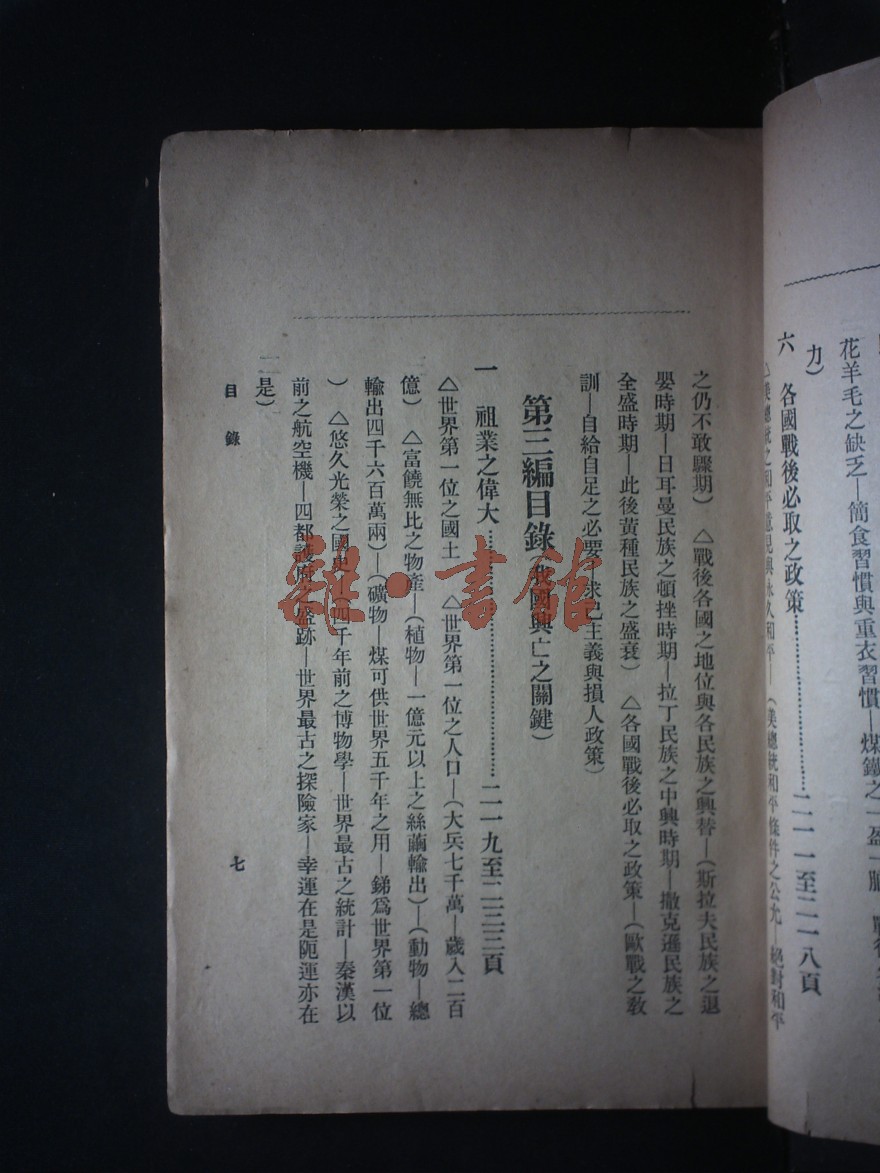 花羊毛之缺乏—簡食習慣與重衣習慣—煤鐵之一盈一朒
力)
六 各國戰後必取之政策……二一一至二一八頁
△美總統之和平意見與永久和平—(美總統和平條件之公允 絕對和平
之仍不敢驟期) △戰後各國之地位與各民族之興替—(斯拉夫民族之退
嬰時期—日耳曼民族之頓挫時期—拉丁民族之中興時期—撒克遜民族之
全盛時期—此後黃種民族之盛衰) △各國戰後必取之政策—(歐戰之敎
訓—自給自足之必要—求己主義與損人政策)
第三編目錄(我國興亡之關鍵)
一 祖業之偉大……二一九至二三三頁
△世界第一位之國土 △世界第一位之人口—(大兵七千萬—歲入二百
億) △富饒無比之物產—(植物—一億元以上之絲繭輸出)—(動物—總
輸出四千六百萬兩)—(礦物—煤可供世界五千年之用—銻爲世界第一位
) △悠久光榮之國史—(四千年前之博物學—世界最古之統計—秦漢以
前之航空機—四都護府之盛跡—世界最古之探險家—幸運在是阨運亦在
是)
目錄
七
雜·書館